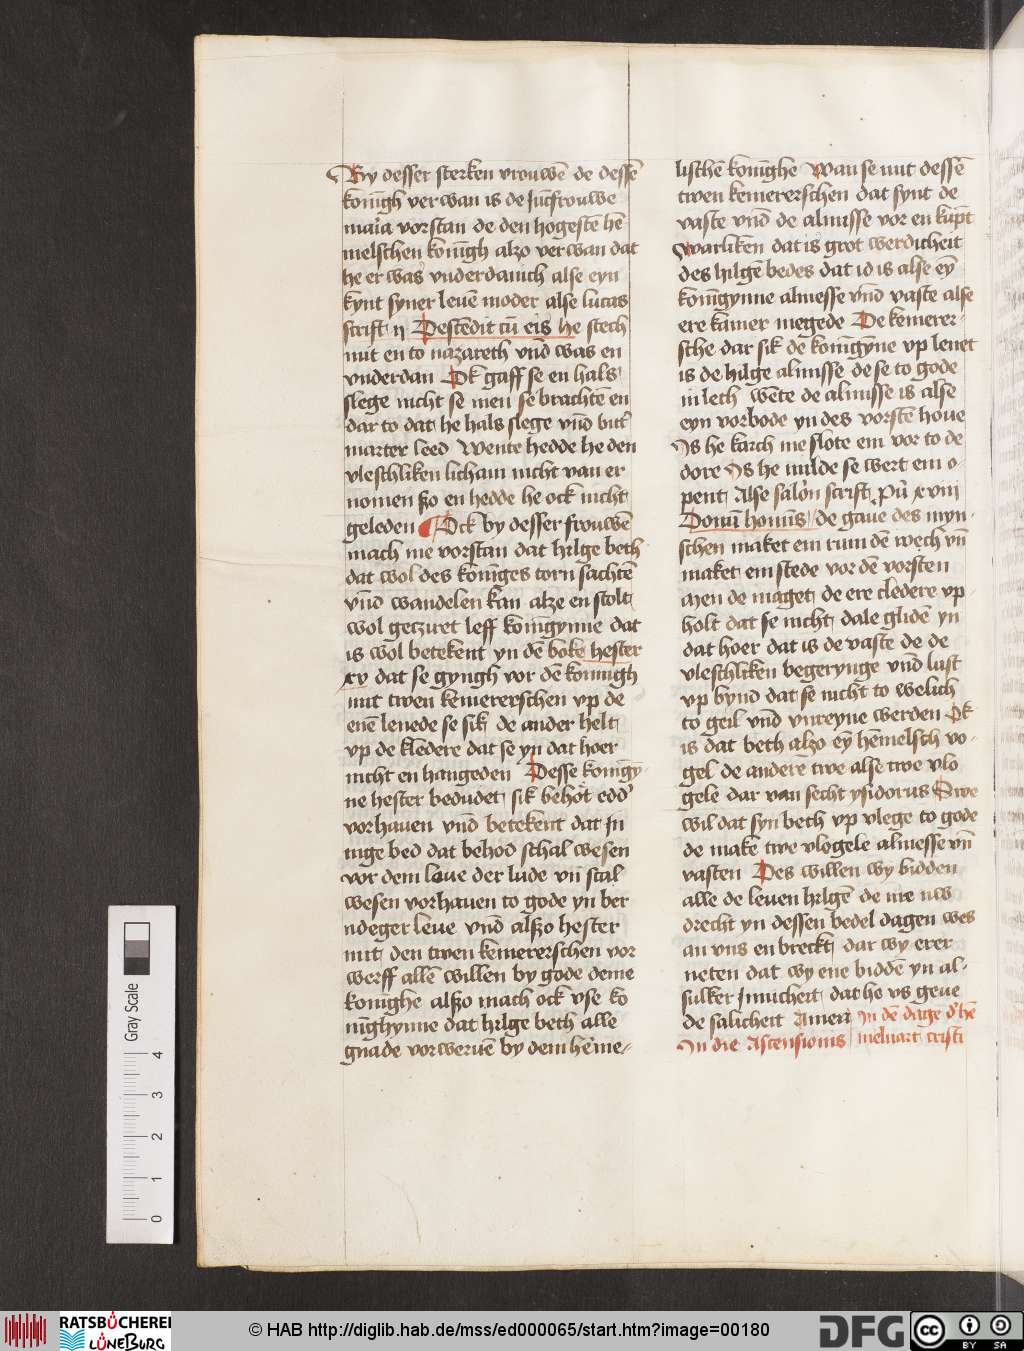 By desser sterken vrouwē de dessē
konīgh verwan is de Jūcfrouwe
maria vorstan de den hogestē he
melschen konīgh alzo verwan dat
he er was vnderdanich alse eyn
kynt syner leuē moder alse lucas
scrift ij Descēdit cū eis he stech
mit en to nazareth vnd was en
vnderdan Ok gaff se en hals
slege nicht se men se brachte en
dar to dat he hals slege vnd bitt̕
marter leed Wente hedde he den
vleschliken licham nicht van er
nomen szo en hedde he ock nicht
geleden Ock by desser frouwē
mach me vorstan dat hilge beth
dat wol des konīges torn sachtē
vnd wandelen kan alze en stolt
wol geczuret leff konīgynne dat
is wol betekent yn dē boke hester
xv dat se gyngh vor dē konnigh
mit twen kemererschen vp de
enē lenede se sik de ander helt
vp de kledere dat se yn dat hoer
nicht en hangeden Desse konīgy
ne hester bedudet sik behot edd̕
vorhauen vnd betekent dat In
nige bed dat behod schal wesen
vor dem loue der lude vn̄ scal
wesen vorhauen to gode yn ber
ndeger leue vnd alszo hester
mit den twen kemererschen vor
werff allē willen by gode deme
konīghe alszo mach ock vse ko
nīghynne dat hilge beth alle
gnade vorweruē by dem heme-
lischē konīghe Wan se mit dessē
twen kemererschen dat synt de
vaste vnd de almisse vor en kūpt
warliken dat is grot werdicheit
des hilgē bedes dat id is alse ey̅
konīgynne almesse vnd vaste alse
ere kamer megede De kemerer-
sche dar sik dē konīgyne vp lenet
is de hilge almisse de se to gode
in lech wēte de almisse is alse
eyn vorbode yn des vorstē houe
Is he karch me slote em vor to de
dore Is he milde se wert em o-
pent Alse salōn scrift pū xviij
Donū hominīs de gaue des myn-
schen maket em rum dē wech vn̄
maket em stede vor dē vorsten
Men de maget de ere cledere vp
holt dat se nicht dale glidē yn
dat hoer dat is de vaste de de
vleschliken begerynge vnd lust
vp bynd dat se nicht to welich
to geil vnd vnreyne werden Ok
is dat beth alzo ey̅ hēmelsch vo-
gel de anderē twe alse twe vlo
gele dar van secht ysidorus Swe
wil dat syn beth vp vlege to gode
de make twe vlogele almesse vn̄
vasten Des willen wy bidden
alle de leuen hilgē de me nw
drecht yn dessen bedel dagen wes
an vns en breckt dar wy erer
neten dat wy ene biddē yn al-
sulker Innicheit dat he vs geue
de salicheit Amen In dē dage d̕ he
In die Ascensionis melvart cristi
Gray Scale
4
3
2
1
0
RATSBÜCHEREI
LÜNEBURG
© HAB http://diglib.hab.de/mss/ed000065/start.htm?image=00180
DFG
cc
BY SA